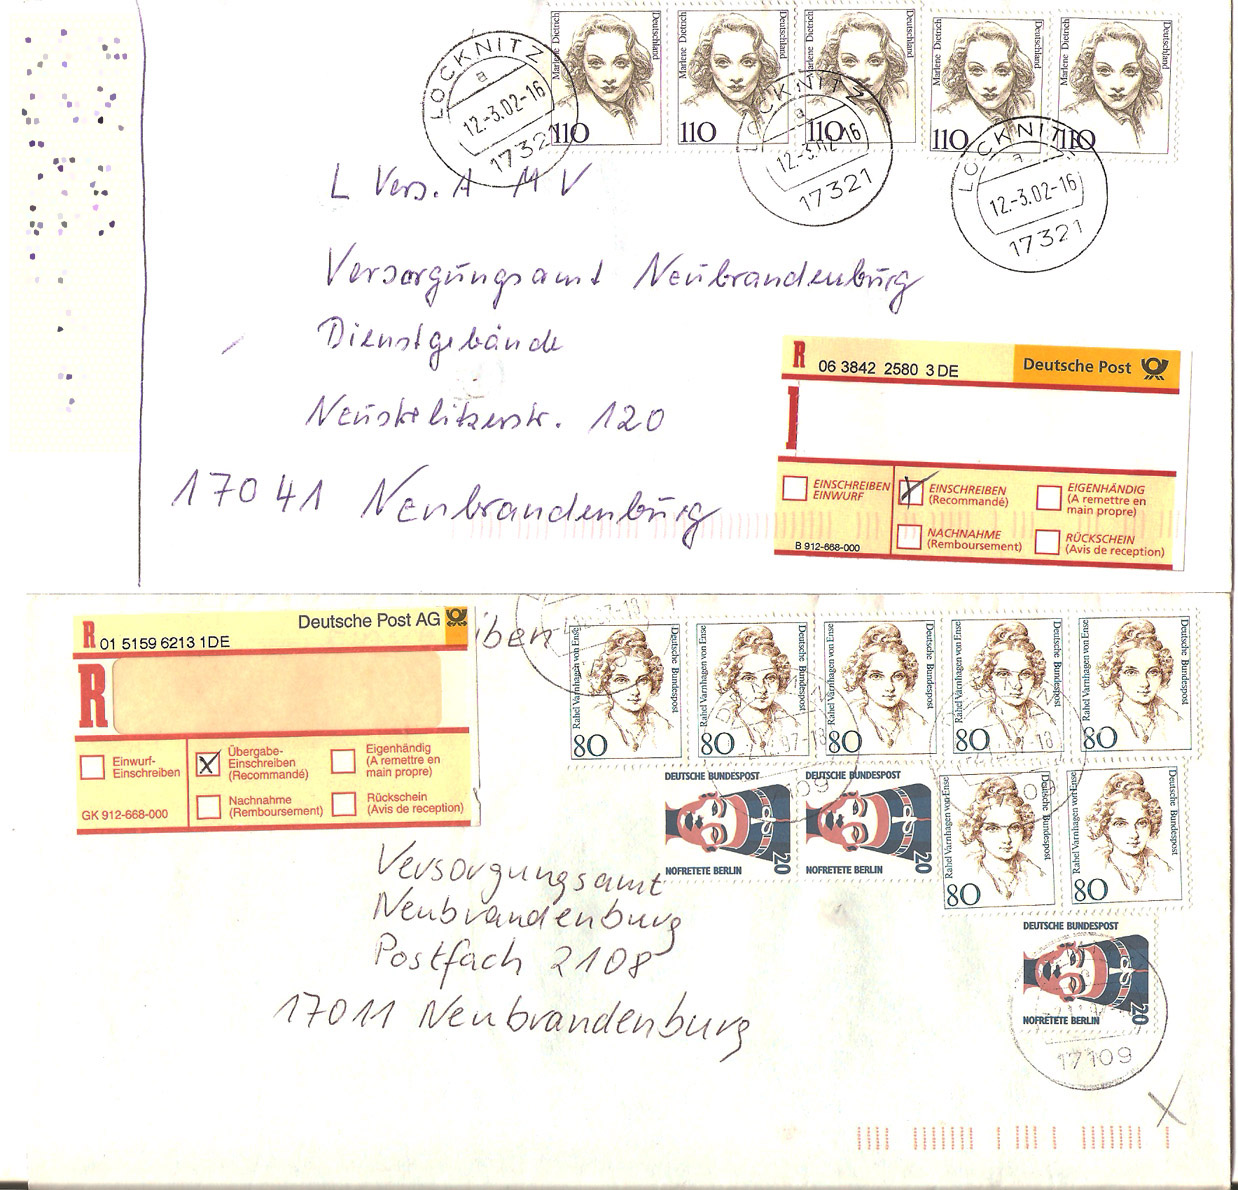 Marlene Dietrich Deutschland 110
Marlene Dietrich Deutschland 110
Marlene Dietrich Deutschland 110
Marlene Dietrich Deutschland 110
Marlene Dietrich Deutschland 110
LOCKNITZ
a
12.-3.02-16
17321
LOCKNITZ
a
12.-3.02-16
17321
LOCKNITZ
a
12.-3.02-16
17321
L Vers. A M V
Versorgungsamt Neubrandenburg
Dienstgebäude
Neustrelitzerstr. 120
17041 Neubrandenburg
R 06 3842 2580 3 DE Deutsche Post
EINSCHREIBEN EINWURF
EINSCHREIBEN (Recommandé)
EIGENHÄNDIG (A remettre en main propre)
NACHNAHME (Remboursement)
RÜCKSCHEIN (Avis de reception)
B 912-668-000
R 01 5159 6213 1DE Deutsche Post AG
R
Einwurf-Einschreiben
Übergabe-Einschreiben (Recommandé)
Eigenhändig (A remettre en main propre)
Nachnahme (Remboursement)
Rückschein (Avis de reception)
GK 912-668-000
iben
Rahel Varnhagen von Ense Deutsche Bundespost 80
Rahel Varnhagen von Ense Deutsche Bundespost 80
Rahel Varnhagen von Ense Deutsche Bundespost 80
Rahel Varnhagen von Ense Deutsche Bundespost 80
Rahel Varnhagen von Ense Deutsche Bundespost 80
DEUTSCHE BUNDESPOST 20 NOFRETETE BERLIN
DEUTSCHE BUNDESPOST 20 NOFRETETE BERLIN
Rahel Varnhagen von Ense Deutsche Bundespost 80
Rahel Varnhagen von Ense Deutsche Bundespost 80
DEUTSCHE BUNDESPOST 20 NOFRETETE BERLIN
17109
Versorgungsamt
Neubrandenburg
Postfach 2108
17011 Neubrandenburg